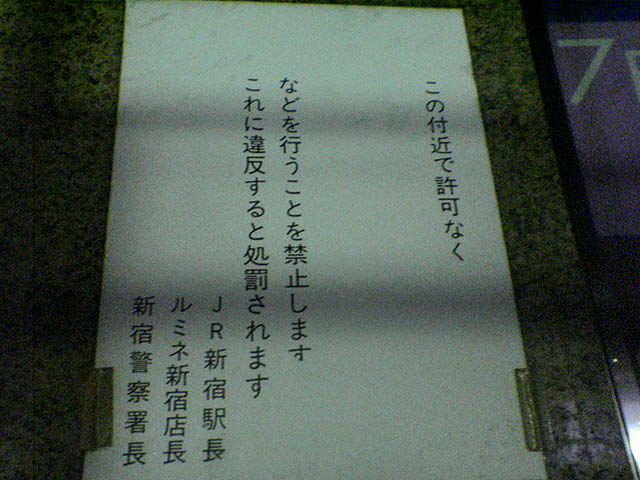 この付近で許可なく
などを行うことを禁止します
これに違反すると処罰されます
JR新宿駅長
ルミネ新宿店長
新宿警察署長
7